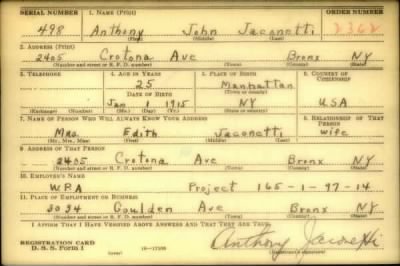 SERIAL NUMBER 1. NAME (Print) ORDER NUMBER
498 Anthony John Jaconetti 2362
(First) (Middle) (Last)
2. ADDRESS (Print)
2405 Crotona Ave Bronx NY
(Number and street or R. F. D. number) (Town) (County) (State)
3. TELEPHONE 4. AGE IN YEARS 5. PLACE OF BIRTH 6. COUNTRY OF CITIZENSHIP
25 Manhattan
DATE OF BIRTH (Town or county)
Jan 1 1915 NY USA
(Exchange) (Number) (Mo.) (Day) (Yr.) (State or country)
7. NAME OF PERSON WHO WILL ALWAYS KNOW YOUR ADDRESS 8. RELATIONSHIP OF THAT PERSON
Mrs. Edith Jaconetti wife
(Mr., Mrs., Miss) (First) (Middle) (Last)
9. ADDRESS OF THAT PERSON
2405 Crotona Ave Bronx NY
(Number and street or R. F. D. number) (Town) (County) (State)
10. EMPLOYER'S NAME
W.P.A Project 165-1-97-14
11. PLACE OF EMPLOYMENT OR BUSINESS
3034 Goulden Ave Bronx NY
(Number and street or R. F. D. number) (Town) (County) (State)
I AFFIRM THAT I HAVE VERIFIED ABOVE ANSWERS AND THAT THEY ARE TRUE.
REGISTRATION CARD
D. S. S. Form 1 (over) Anthony Jaconetti